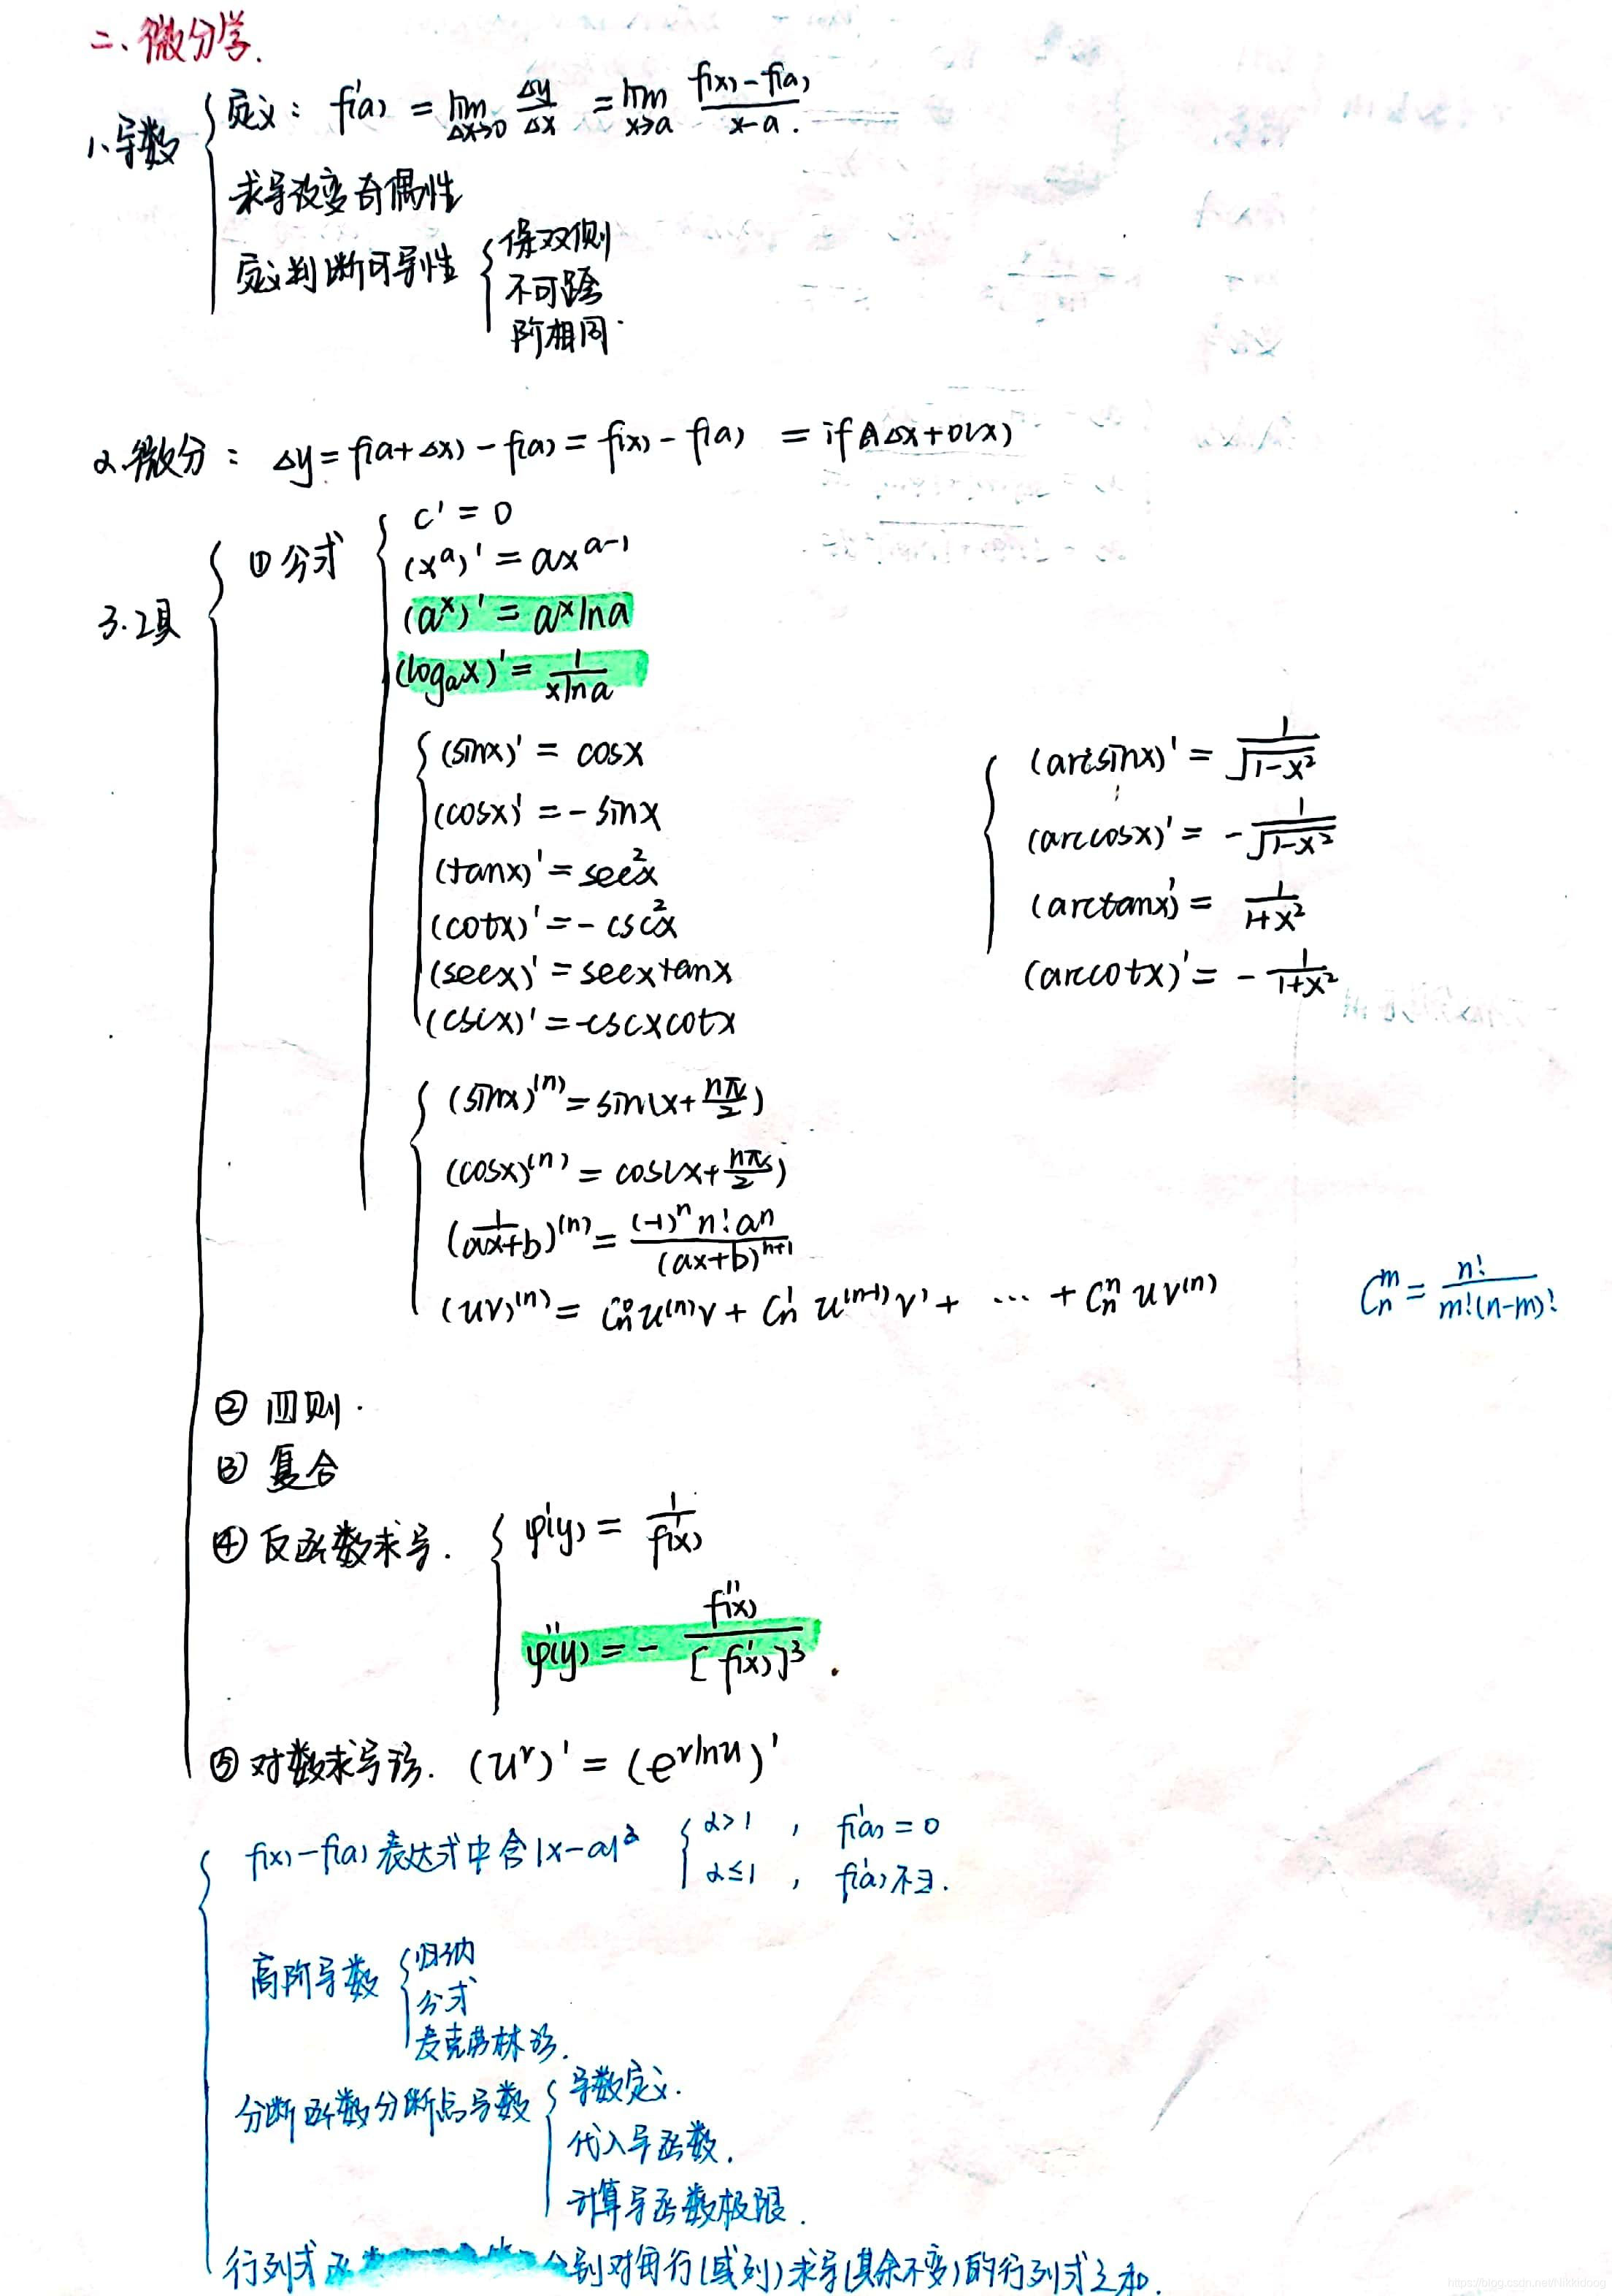 二、微分学.
1、导数
定义: f'(a) = lim Δx→0 Δy/Δx = lim x→a (f(x)-f(a))/(x-a).
求导改变奇偶性
定义判断可导性
保双侧
不可跨
阶相同.
2.微分: Δy = f(a+Δx) - f(a) = f(x) - f(a) = if AΔx+o(x)
3.工具
①公式
c' = 0
(x^a)' = ax^(a-1)
(a^x)' = a^x lna
(log_a x)' = 1/(xlna)
(sinx)' = cosx
(cosx)' = -sinx
(tanx)' = sec²x
(cotx)' = -csc²x
(secx)' = secxtanx
(cscx)' = -cscxcotx
(arcsinx)' = 1/√(1-x²)
(arccosx)' = -1/√(1-x²)
(arctanx)' = 1/(1+x²)
(arccotx)' = -1/(1+x²)
(sinx)^(n) = sin(x+nπ/2)
(cosx)^(n) = cos(x+nπ/2)
(1/(ax+b))^(n) = (-1)^n n! a^n/(ax+b)^(n+1)
(uv)^(n) = C_n^0 u^(n)v + C_n^1 u^(n-1)v' + ··· + C_n^n uv^(n)
C_n^m = n!/(m!(n-m)!)
② 四则.
③ 复合
④ 反函数求导.
φ'(y) = 1/f'(x)
φ''(y) = - f''(x)/[f'(x)]³.
⑤ 对数求导法. (u^v)' = (e^(vlnu))'
f(x)-f(a)表达式中含|x-a|^α
α>1, f'(a)=0
α≤1, f'(a)不∃.
高阶导数
归纳
公式
麦克劳林法.
分断函数分断点导数
导数定义.
代入导函数.
计算导函数极限.
行列式 分别对每行(或列)求导(其余不变)的行列式之和.
https://blog.csdn.net/Nikkidoog